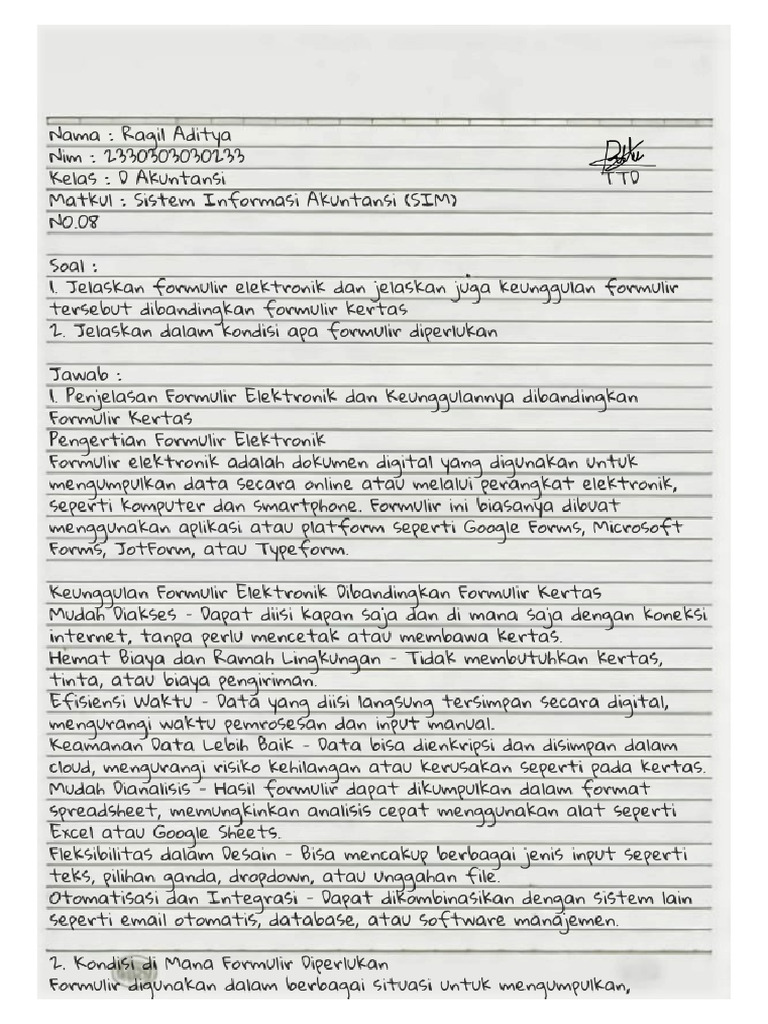 Nama : Ragil Aditya
Nim : 2330303030233
Kelas : D Akuntansi
TTD
Matkul : Sistem Informasi Akuntansi (SIM)
NO.08
Soal :
1. Jelaskan formulir elektronik dan jelaskan juga keunggulan formulir
tersebut dibandingkan formulir kertas
2. Jelaskan dalam kondisi apa formulir diperlukan
Jawab :
1. Penjelasan Formulir Elektronik dan Keunggulannya dibandingkan
Formulir Kertas
Pengertian Formulir Elektronik
Formulir elektronik adalah dokumen digital yang digunakan untuk
mengumpulkan data secara online atau melalui perangkat elektronik,
seperti komputer dan smartphone. Formulir ini biasanya dibuat
menggunakan aplikasi atau platform seperti Google Forms, Microsoft
Forms, JotForm, atau Typeform.
Keunggulan Formulir Elektronik Dibandingkan Formulir Kertas
Mudah Diakses - Dapat diisi kapan saja dan di mana saja dengan koneksi
internet, tanpa perlu mencetak atau membawa kertas.
Hemat Biaya dan Ramah Lingkungan - Tidak membutuhkan kertas,
tinta, atau biaya pengiriman.
Efisiensi Waktu - Data yang diisi langsung tersimpan secara digital,
mengurangi waktu pemrosesan dan input manual.
Keamanan Data Lebih Baik - Data bisa dienkripsi dan disimpan dalam
cloud, mengurangi risiko kehilangan atau kerusakan seperti pada kertas.
Mudah Dianalisis - Hasil formulir dapat dikumpulkan dalam format
spreadsheet, memungkinkan analisis cepat menggunakan alat seperti
Excel atau Google Sheets.
Fleksibilitas dalam Desain - Bisa mencakup berbagai jenis input seperti
teks, pilihan ganda, dropdown, atau unggahan file.
Otomatisasi dan Integrasi - Dapat dikombinasikan dengan sistem lain
seperti email otomatis, database, atau software manajemen.
2. Kondisi di Mana Formulir Diperlukan
Formulir digunakan dalam berbagai situasi untuk mengumpulkan,